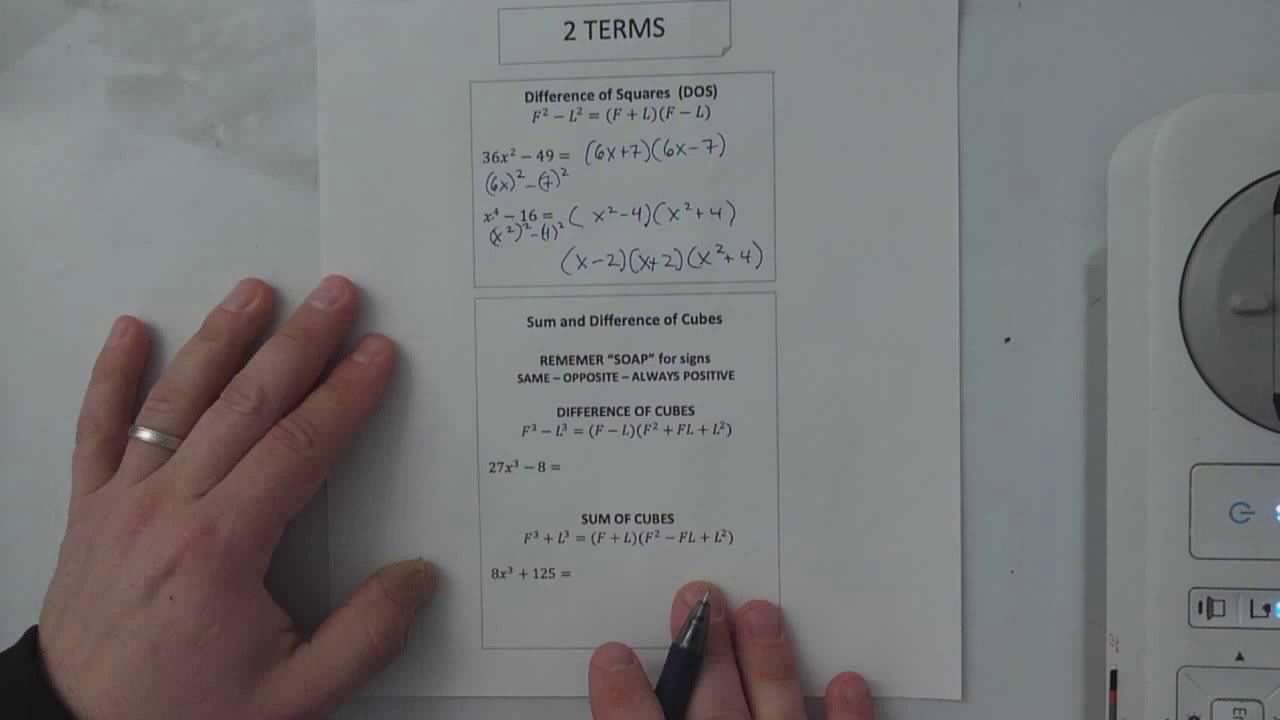 2 TERMS
Difference of Squares (DOS)
F² − L² = (F + L)(F − L)
36x² − 49 = (6x+7)(6x−7)
(6x)² − (7)²
x⁴ − 16 = (x²−4)(x²+4)
(x²)² − (4)²
(x−2)(x+2)(x²+4)
Sum and Difference of Cubes
REMEMER “SOAP” for signs
SAME – OPPOSITE – ALWAYS POSITIVE
DIFFERENCE OF CUBES
F³ − L³ = (F − L)(F² + FL + L²)
27x³ − 8 =
SUM OF CUBES
F³ + L³ = (F + L)(F² − FL + L²)
8x³ + 125 =